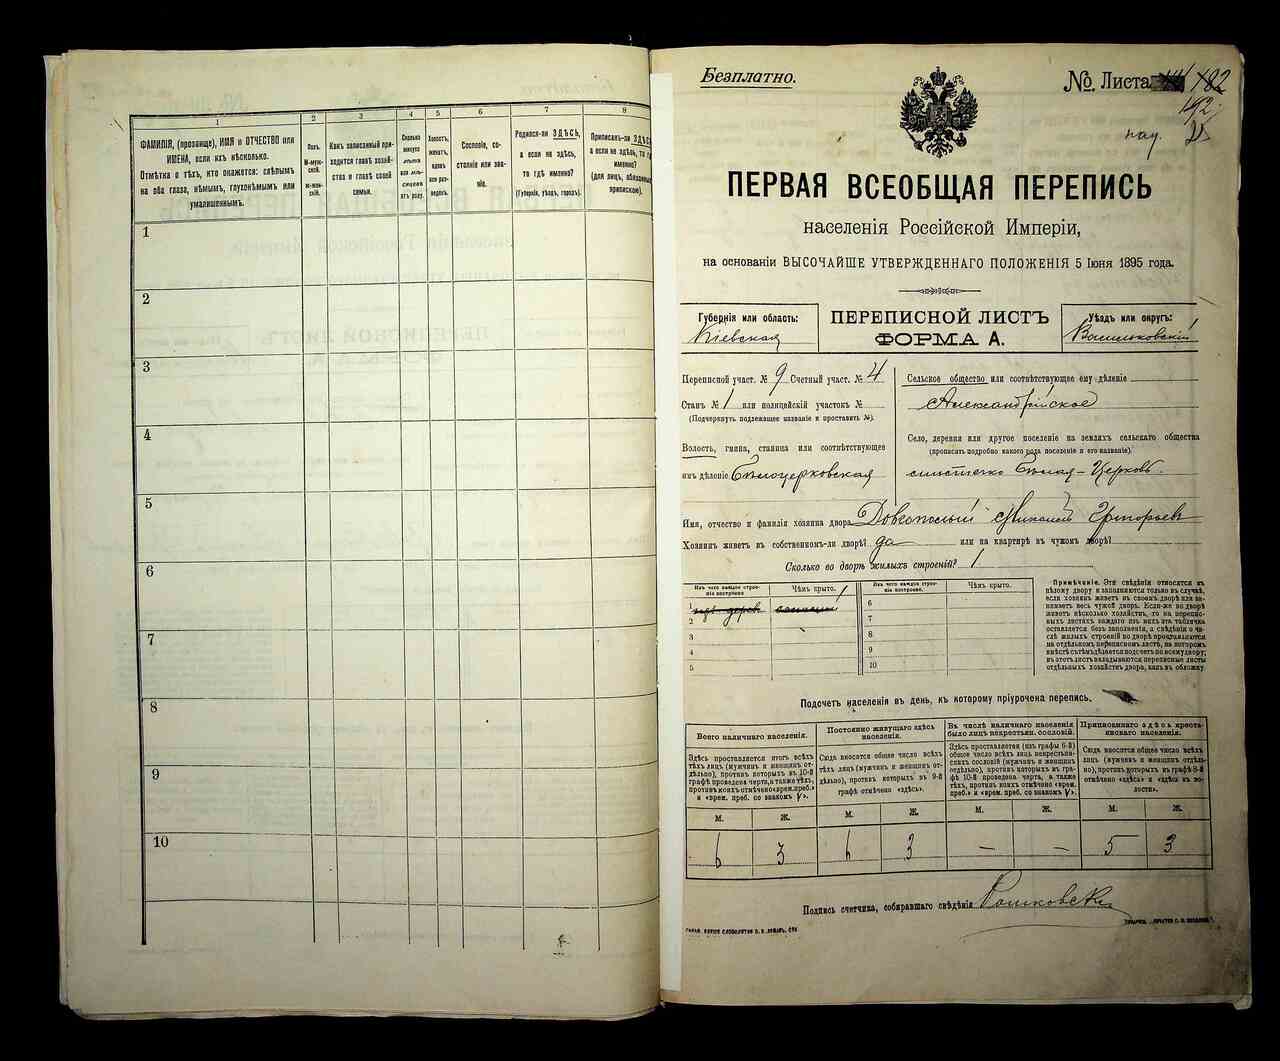 1
2
3
4
5
6
7
8
ФАМИЛІЯ, (прозвище), ИМЯ и ОТЧЕСТВО или
ИМЕНА, если ихъ нѣсколько.
Отмѣтка о тѣхъ, кто окажется: слѣпымъ
на оба глаза, нѣмымъ, глухонѣмымъ или
умалишеннымъ.
Полъ.
М-муж-
ской.
Ж-жен-
скій.
Какъ записанный при-
ходится главѣ хозяй-
ства и главѣ своей
семьи.
Сколько
минуло
лѣтъ
или мѣ-
сяцевъ
отъ роду.
Холостъ,
женатъ,
вдовъ
или раз-
веденъ.
Сословіе, со-
стояніе или зва-
ніе.
Родился-ли ЗДѢСЬ,
а если не здѣсь,
то гдѣ именно?
(Губернія, уѣздъ, городъ).
Приписанъ-ли ЗДѢСЬ,
а если не здѣсь, то гдѣ
именно?
(для лицъ, обязанныхъ
припискою).
1
2
3
4
5
6
7
8
9
10
Безплатно.
№ Листа 182
192
ПЕРВАЯ ВСЕОБЩАЯ ПЕРЕПИСЬ
населенія Россійской Имперіи,
на основаніи ВЫСОЧАЙШЕ УТВЕРЖДЕННАГО ПОЛОЖЕНІЯ 5 Іюня 1895 года.
Губернія или область:
Кіевская
ПЕРЕПИСНОЙ ЛИСТЪ
ФОРМА А.
Уѣздъ или округъ:
Васильковскій
Переписной участ. № 9 Счетный участ. № 4
Станъ № 1 или полицейскій участокъ №
(Подчеркнуть подлежащее названіе и проставить №).
Волость, гмина, станица или соотвѣтствующее
имъ дѣленіе Бѣлоцерковская
Сельское общество или соотвѣтствующее ему дѣленіе
Александрійское
Село, деревня или другое поселеніе на земляхъ сельскаго общества
(прописать подробно какого рода поселеніе и его названіе).
мѣстечко Бѣлая-Церковь
Имя, отчество и фамилія хозяина двора Григорьев
Хозяинъ живетъ въ собственномъ-ли дворѣ? да или на квартирѣ въ чужомъ дворѣ?
Сколько во дворѣ жилыхъ строеній? 1
Изъ чего каждое строе-
ніе построено
Чѣмъ крыто.
Изъ чего каждое строе-
ніе построено.
Чѣмъ крыто.
1
2
3
4
5
6
7
8
9
10
Примѣчаніе. Эти свѣдѣнія относятся къ
цѣлому двору и заполняются только въ случаѣ,
если хозяинъ живетъ въ своемъ дворѣ или за-
нимаетъ весь чужой дворъ. Если-же во дворѣ
живетъ нѣсколько хозяйствъ, то на перепис-
ныхъ листахъ каждаго изъ нихъ эта табличка
оставляется безъ заполненія, а свѣдѣнія о чи-
слѣ жилыхъ строеній во дворѣ проставляются
на отдѣльномъ переписномъ листѣ, на которомъ
вмѣстѣ съ тѣмъ дѣлается подсчетъ по всему двору;
въ этотъ листъ вкладываются переписные листы
отдѣльныхъ хозяйствъ двора, какъ въ обложку.
Подсчетъ населенія въ день, къ которому пріурочена перепись.
Всего наличнаго населенія.
Постоянно живущаго здѣсь
населенія.
Въ числѣ наличнаго населенія
было лицъ некрестьян. сословій.
Приписаннаго здѣсь кресть-
янскаго населенія.
Здѣсь проставляется итогъ всѣхъ
тѣхъ лицъ (мужчинъ и женщинъ от-
дѣльно), противъ которыхъ въ 10-й
графѣ проведена черта, а также тѣхъ,
противъ коихъ отмѣчено «врем. преб.»
и «врем. преб. со знакомъ V».
Сюда вносятся общее число всѣхъ
тѣхъ лицъ (мужчинъ и женщинъ от-
дѣльно), противъ которыхъ въ 9-й
графѣ отмѣчено «здѣсь».
Здѣсь проставляется (изъ графы 6-й)
общее число всѣхъ лицъ некрестьян-
скихъ сословій (мужчинъ и женщинъ
отдѣльно), противъ которыхъ въ гра-
фѣ 10-й проведена черта, а также
тѣхъ, противъ коихъ отмѣчено «врем.
преб.» и «врем. преб. со знакомъ V».
Сюда вносятся общее число всѣхъ
лицъ (мужчинъ и женщинъ отдѣль-
но), противъ которыхъ въ графѣ 8-й
отмѣчено «здѣсь» и «здѣсь въ во-
лости».
М. Ж. М. Ж. М. Ж. М. Ж.
6 3 6 3 — — 5 3
Подпись счетчика, собиравшаго свѣдѣнія